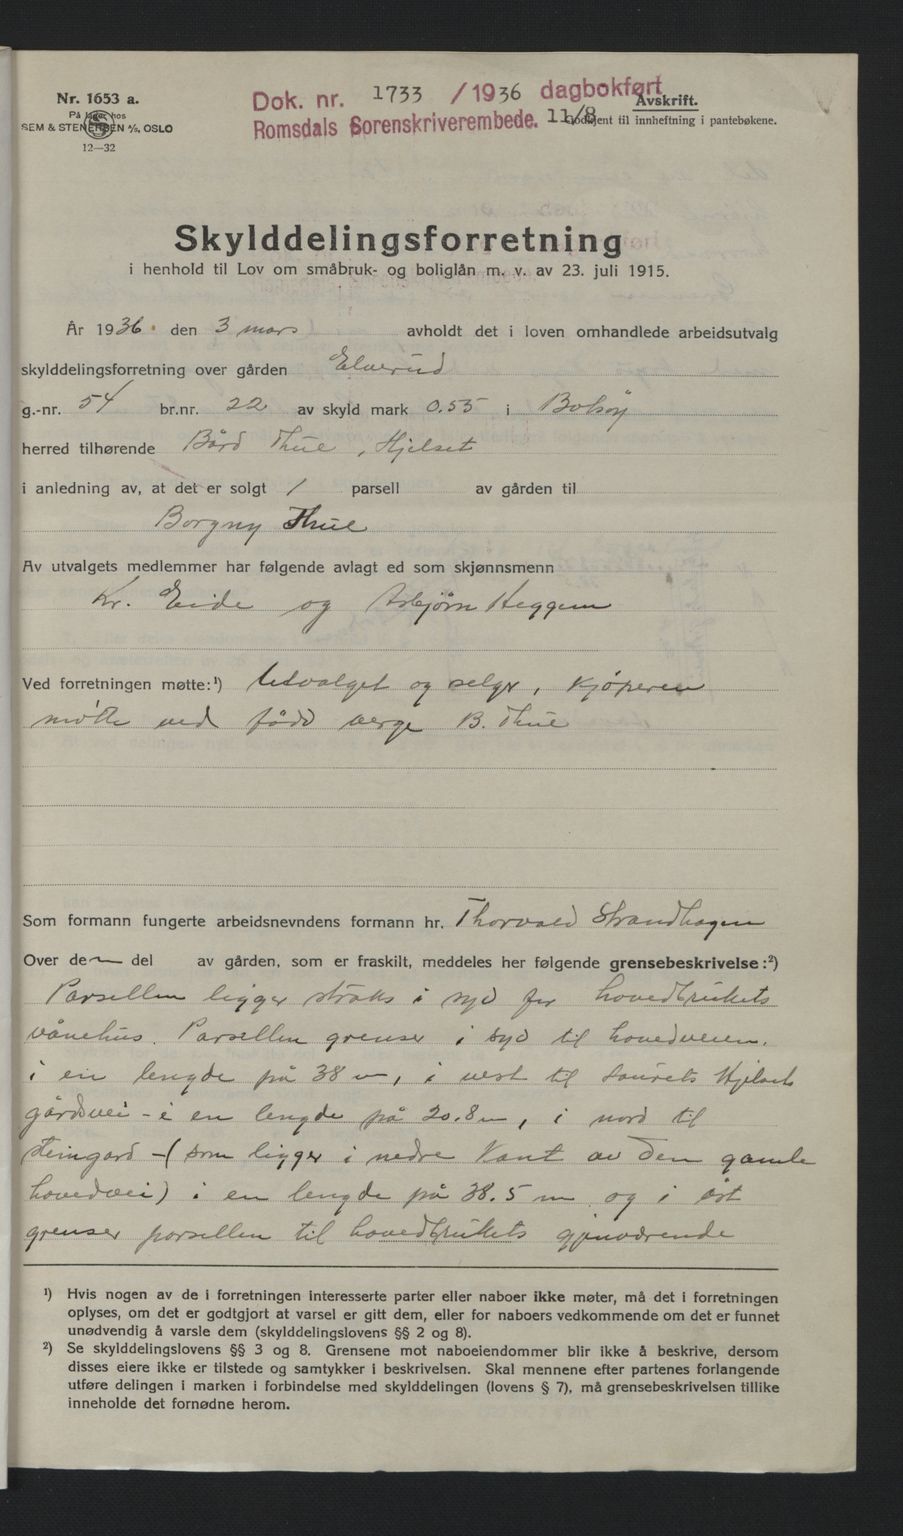 Nr. 1653 a.
På lager hos
SEM & STENERSEN A/S, OSLO
12—32
Dok. nr. 1733 /1936 dagbokført
Romsdals Sorenskriverembede. 11/8
Avskrift.
Godkjent til innheftning i pantebøkene.
Skylddelingsforretning
i henhold til Lov om småbruk- og boliglån m. v. av 23. juli 1915.
År 1936 den 3 mars avholdt det i loven omhandlede arbeidsutvalg
skylddelingsforretning over gården Elverud
g.-nr. 54 br.nr. 22 av skyld mark 0.55 i Bolsöy
herred tilhørende Bård Thue, Hjelset
i anledning av, at det er solgt 1 parsell av gården til
Borgny Thue
Av utvalgets medlemmer har følgende avlagt ed som skjønnsmenn
Kr. Eide og Asbjørn Heggem
Ved forretningen møtte:¹) Utvalget og selger, kjöperen
møtte ved född verge B. Thue
Som formann fungerte arbeidsnevndens formann hr. Thorvald Strandhagen
Over den del av gården, som er fraskilt, meddeles her følgende grensebeskrivelse:²)
Parsellen ligger straks i syd for hovedbrukets
vånehus. Parsellen grenser i syd til hovedveien.
i en lengde på 38 m, i vest til Hjelset
gårdsvei - i en lengde på 20.8 m, i nord til
steingard - (som ligger i nedre kant av den gamle
hovedvei) i en lengde på 38.5 m og i öst
grenser parsellen til hovedbrukets gjenværende
¹) Hvis nogen av de i forretningen interesserte parter eller naboer ikke møter, må det i forretningen
oplyses, om det er godtgjort at varsel er gitt dem, eller for naboers vedkommende om det er funnet
unødvendig å varsle dem (skylddelingslovens §§ 2 og 8).
²) Se skylddelingslovens §§ 3 og 8. Grensene mot naboeiendommer blir ikke å beskrive, dersom
disses eiere ikke er tilstede og samtykker i beskrivelsen. Skal mennene efter partenes forlangende
utføre delingen i marken i forbindelse med skylddelingen (lovens § 7), må grensebeskrivelsen tillike
inneholde det fornødne herom.